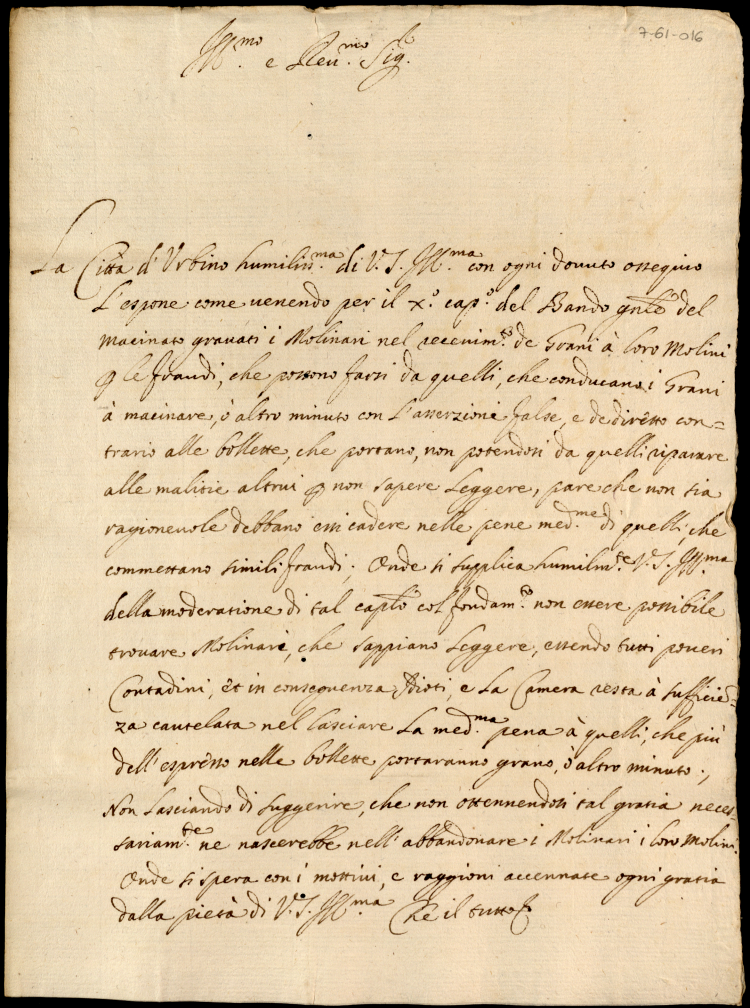 7-61-016
Ill.mo e Reu.mo Sig.r
La Città d'Urbino humiliss.ma di V.S. Ill.ma con ogni douuto ossequio
L'espone come uenendo per il X.o cap.o del Bando gnle del
macinato grauati i Molinari nel receuim.to de Grani à loro Molini
p le fraudi, che possono farsi da quelli, che conducano i Grani
à macinare, ò altro minuto con L'asserzioni false, e de diretto con=
trario alle bollette, che portano, non potendosi da quelli riparare
alle malitie altrui p non sapere Leggere, pare che non sia
ragioneuole debbano essi cadere nelle pene med.me di quelli, che
commettano simili fraudi; Onde si supplica humilm.te V.S. Ill.ma
della moderatione di tal caplo col fondam.to non essere possibile
trouare Molinari, che sappiano Leggere, essendo tutti poueri
Contadini, et in conseguenza Idioti, e La Camera resta à sufficie=
za cautelata nel lasciare La med.ma pena à quelli, che più
dell'espresso nelle bollette portaranno grano, ò altro minuto;
Non Lasciando di suggerire, che non ottennendosi tal gratia neces=
sariam.te ne nascerebbe nell'abbandonare i Molinari i loro Molini
Onde si spera con i mottiui, e raggioni accennate ogni gratia
dalla pietà di V.S. Ill.ma Che il tutto